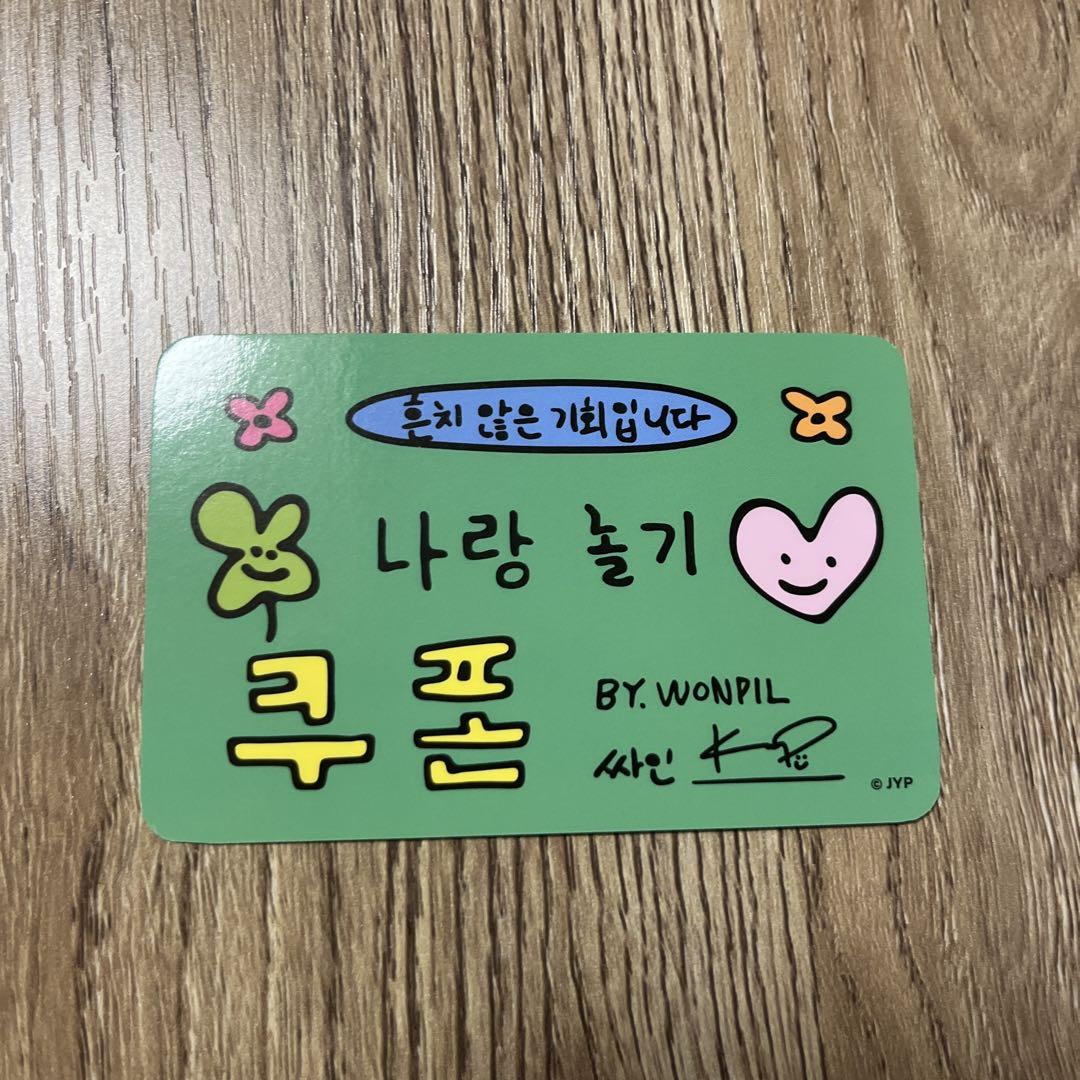 흔치 않은 기회입니다
나랑 놀기
쿠폰
BY. WONPIL
싸인
© JYP